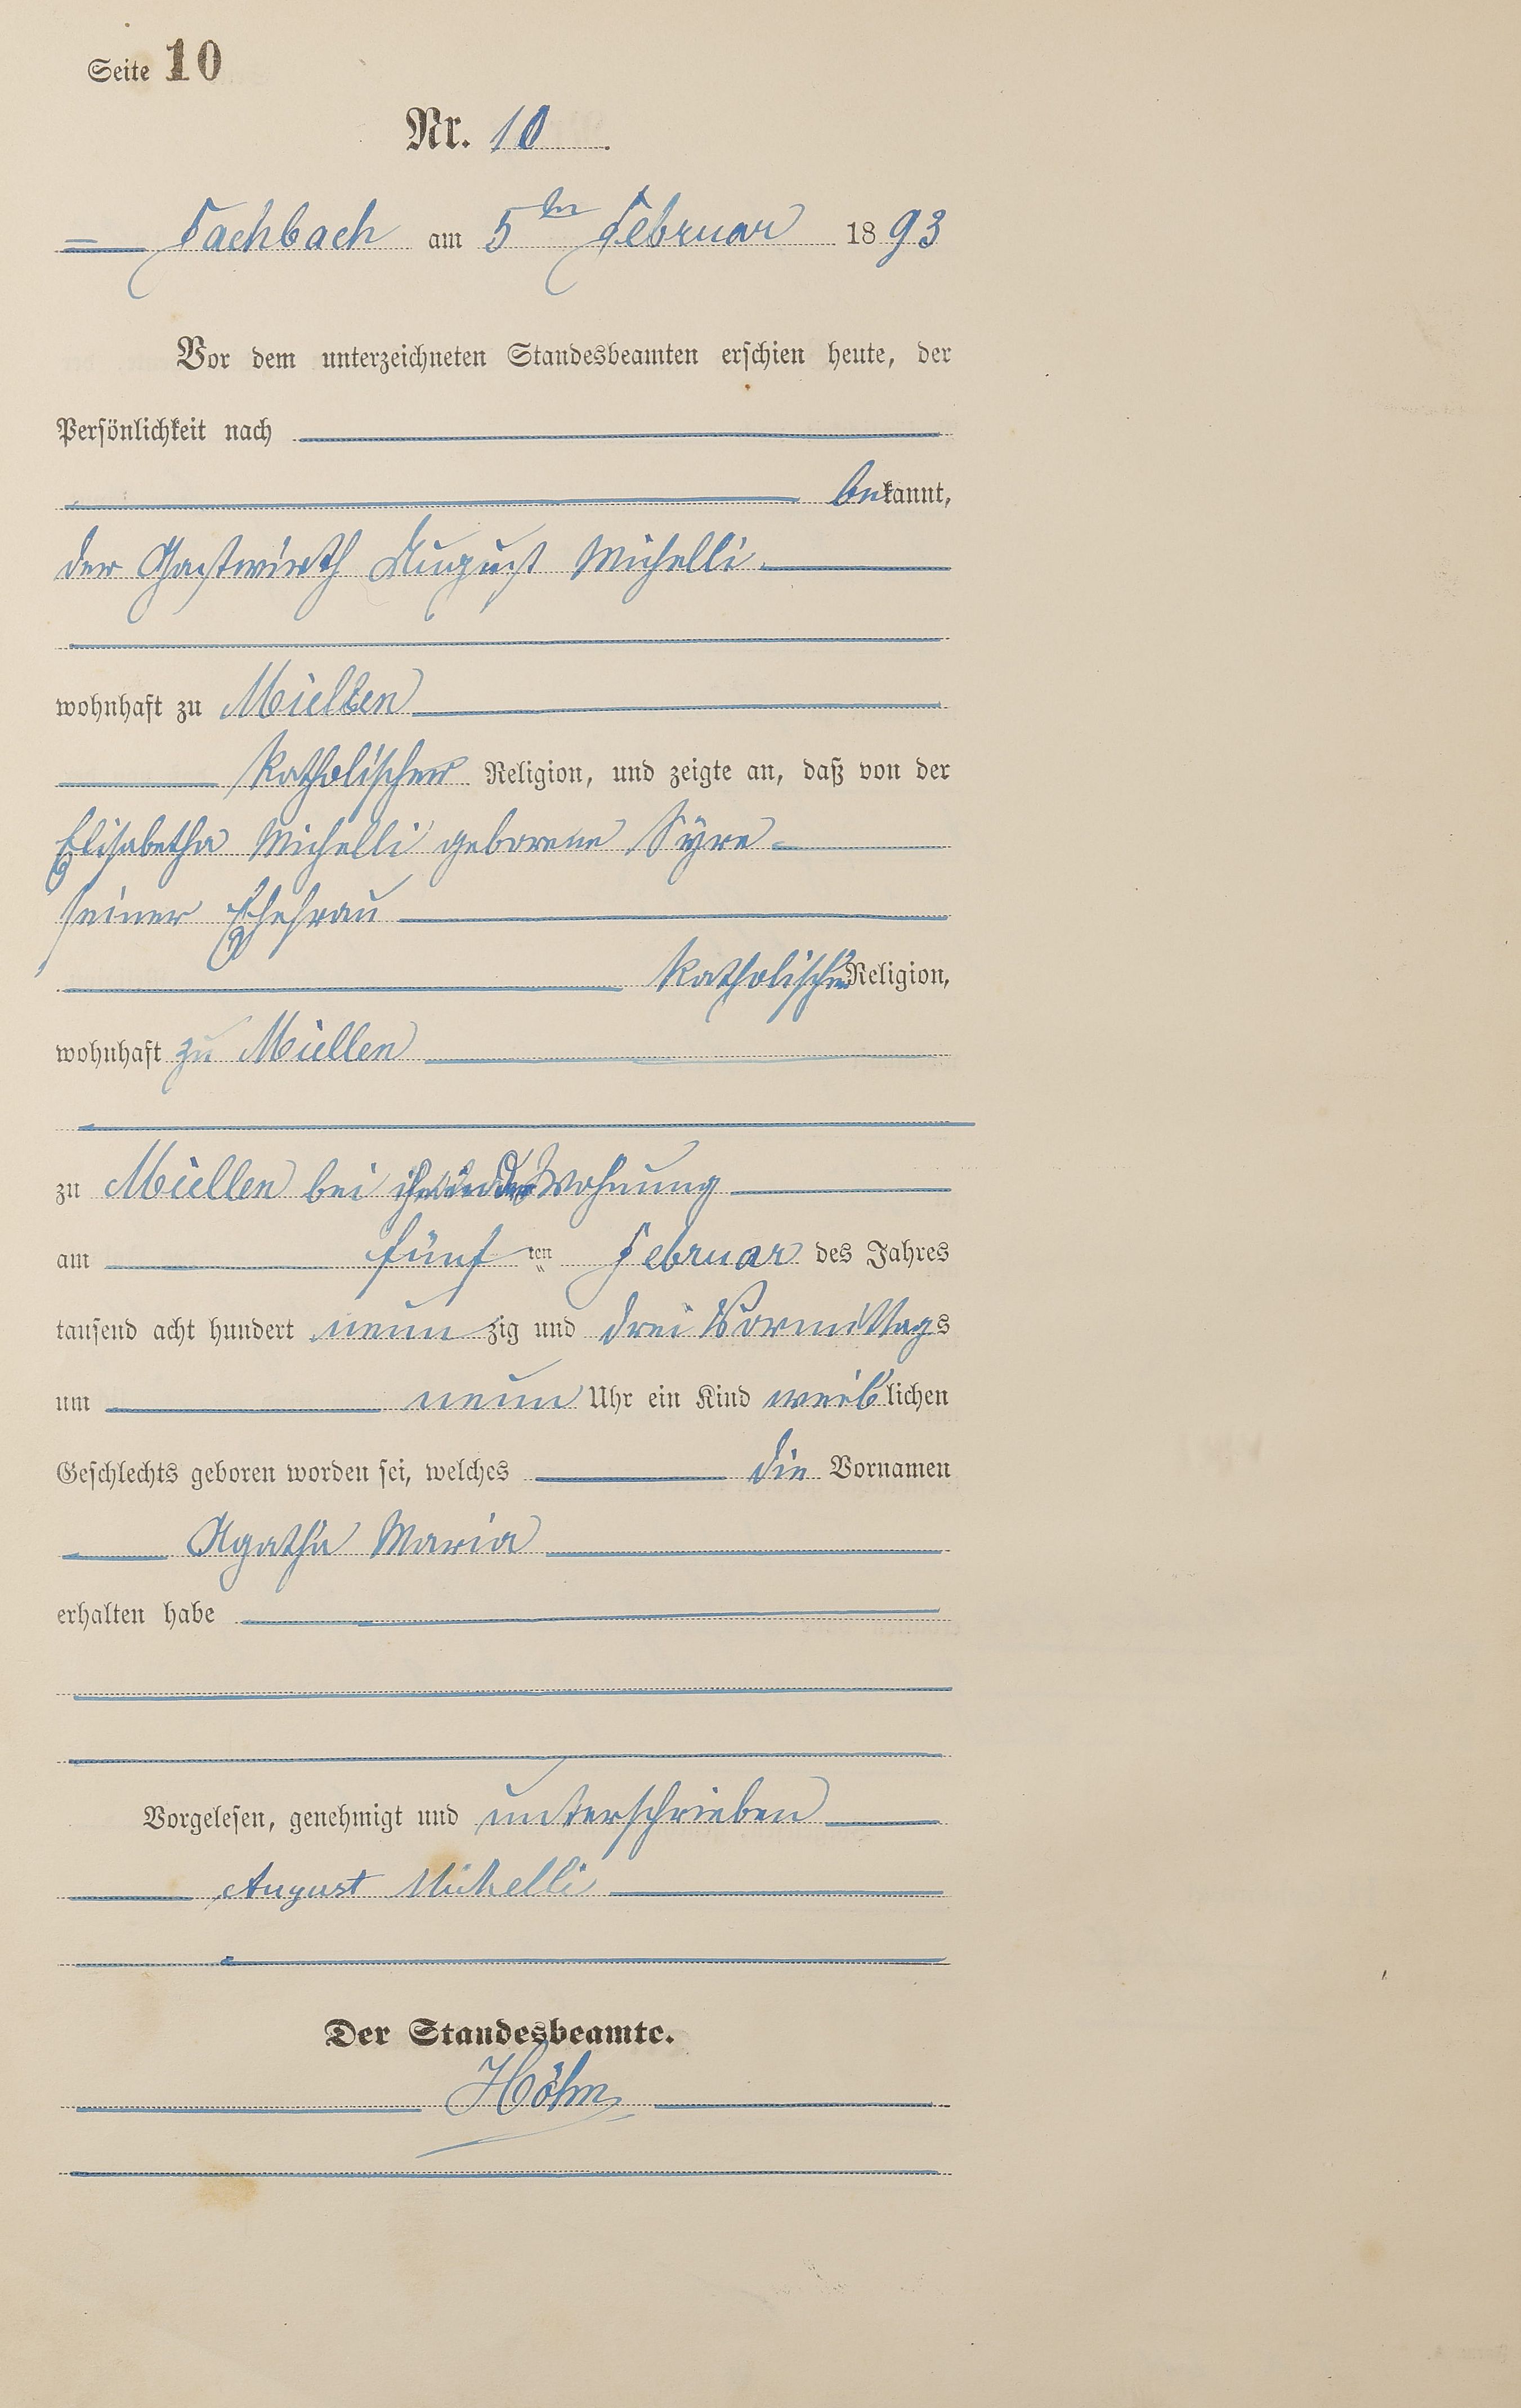 Seite 10
Nr. 10.
Fachbach am 5ten Februar 1893
Vor dem unterzeichneten Standesbeamten erschien heute, der
Persönlichkeit nach
bekannt,
der Gastwirth August Michelli
wohnhaft zu Miellen
katholischer Religion, und zeigte an, daß von der
Elisabetha Michelli geborene Syre
seiner Ehefrau
katholischer Religion,
wohnhaft zu Miellen
zu Miellen bei Wohnung
am fünf ten Februar des Jahres
tausend acht hundert neun zig und drei Vormittags
um neun Uhr ein Kind weiblichen
Geschlechts geboren worden sei, welches die Vornamen
Agatha Maria
erhalten habe
Vorgelesen, genehmigt und unterschrieben
August Michelli
Der Standesbeamte.
Höhn